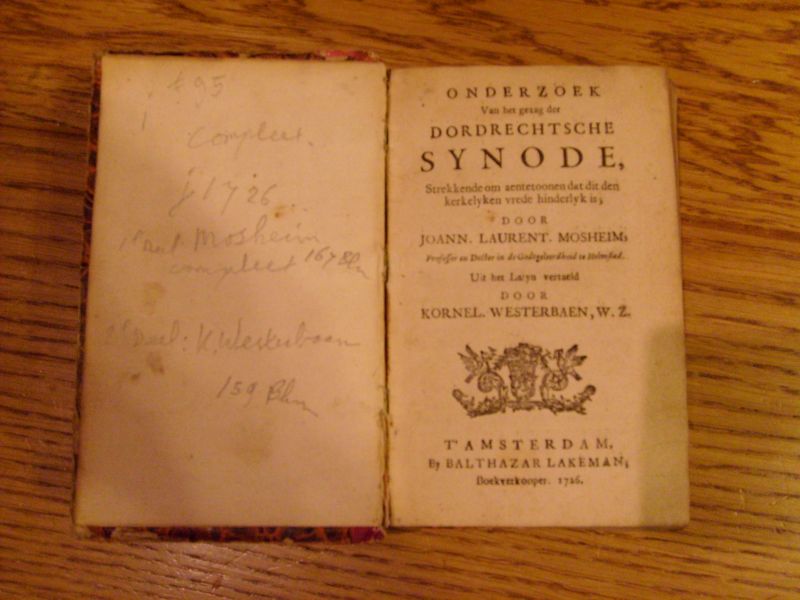 # 95
1
Compleet.
j 1726
1e Deel Mosheim
compleet 167 Blzn
2e Deel: K. Westerbaen
159 Blzn
ONDERZOEK
Van het gezag der
DORDRECHTSCHE
SYNODE,
Strekkende om aentetoonen dat dit den
kerkelyken vrede hinderlyk is;
DOOR
JOANN. LAURENT. MOSHEIM;
Professor en Doctor in de Godtgeleerdheid te Helmstad.
Uit het Latyn vertaeld
DOOR
KORNEL. WESTERBAEN, W. Z.
T' AMSTERDAM,
By BALTHAZAR LAKEMAN;
Boekverkooper. 1726.